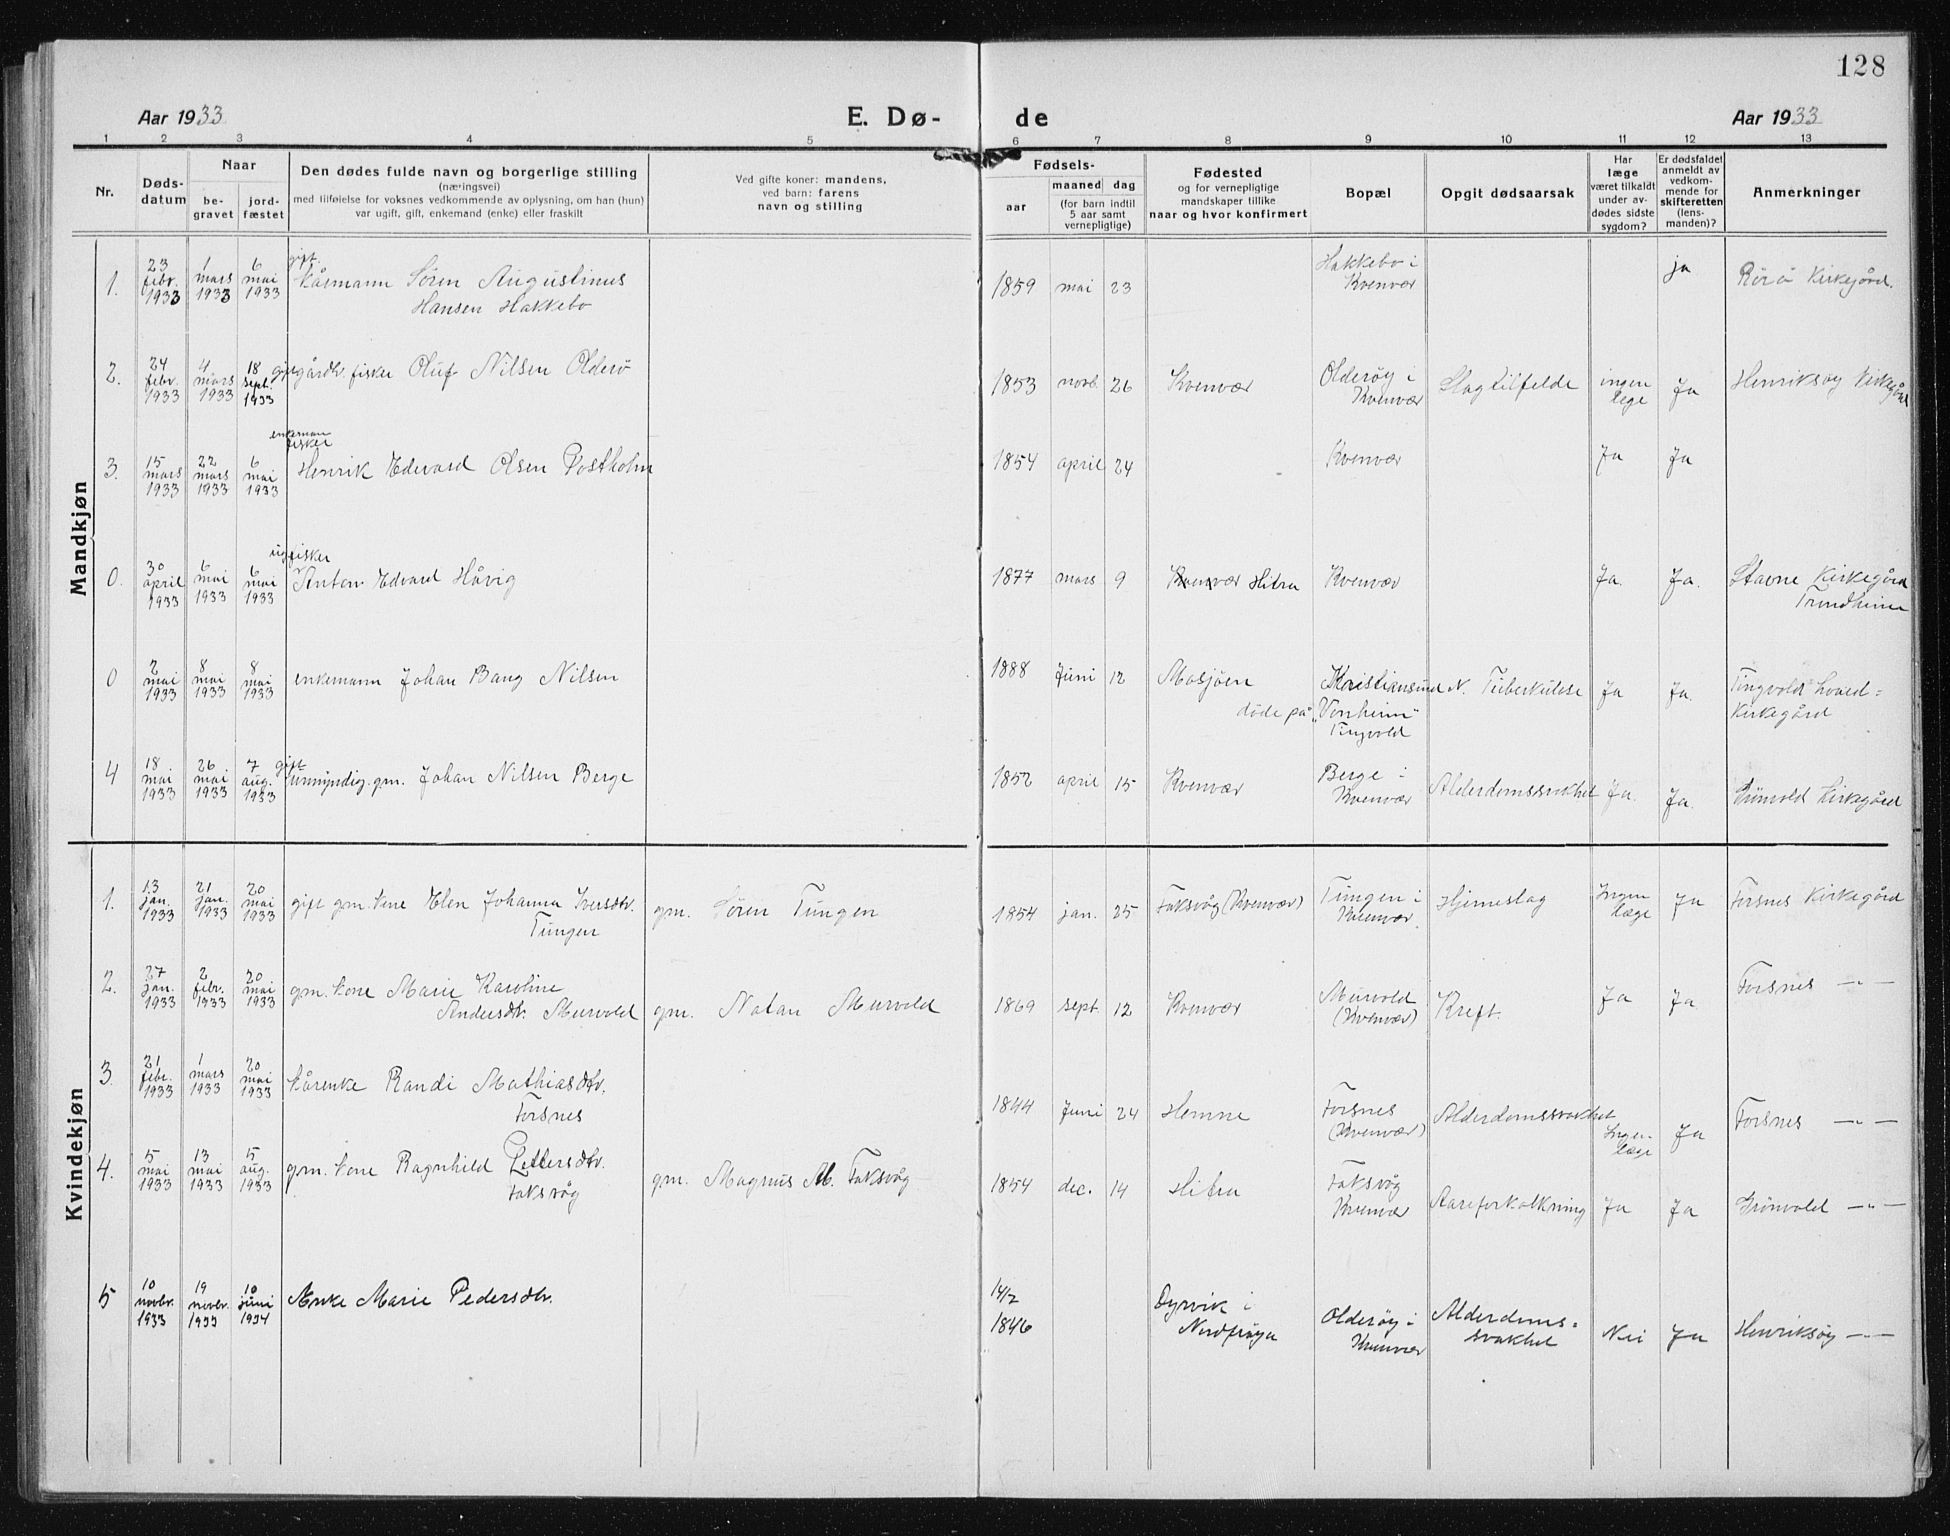 128
Aar 1933 E. Dø- de Aar 1933
1 2 3 4 5 6 7 8 9 10 11 12 13
Nr.
Døds-
datum
Naar
be-
gravet
jord-
fæstet
Den dødes fulde navn og borgerlige stilling
(næringsvei)
med tilføielse for voksnes vedkommende av oplysning, om han (hun)
var ugift, gift, enkemand (enke) eller fraskilt
Ved gifte koner: mandens,
ved barn: farens
navn og stilling
Fødsels-
aar
maaned dag
(for barn indtil
5 aar samt
vernepligtige)
Fødested
og for vernepligtige
mandskaper tillike
naar og hvor konfirmert
Bopæl
Opgit dødsaarsak
Har
læge
været tilkaldt
under av-
dødes sidste
sygdom?
Er dødsfaldet
anmeldt av
vedkom-
mende for
skifteretten
(lens-
manden)?
Anmerkninger
Mandkjøn
1.
23
febr.
1933
1
mars
1933
6
mai
1933
gift.
kårmann Sören Augustinus
Hansen Hakkebo
1859 mai 23
Hakkebo i
Kvenvær
ja
Rörö Kirkegård.
2.
24
febr.
1933
4
mars
1933
18
sept.
1933
gift gårdbr. fisker Oluf Nilsen Olderö
1853 novb. 26
Kvenvær
Olderøy i
Kvenvær
Slagtilfelde
ingen
lege
Ja
Henriksøy Kirkegård
3.
15
mars
1933
22
mars
1933
6
mai
1933
enkeman
fisker
Henrik Edvard Olsen Postholm
1854 april 24
Kvenvær
Ja
Ja
0.
30
april
1933
6
mai
1933
6
mai
1933
ug. fisker
Anton Edvard Håvig
1877 mars 9
Kvenvær Hitra
Kvenvær
Ja.
Ja.
Stavne Kirkegård
Trondheim
0
2
mai
1933
8
mai
1933
8
mai
1933
enkemann Johan Bang Nilsen
1888 Juni 12
Mosjöen
döde på
Kristiansund N.
"Vonheim"
Tingvold
Tuberkulose
Ja
Ja.
Tingvold hoved=
kirkegård
4
18
mai
1933
26
mai
1933
7
aug.
1933
gift
umyndig. gm. Johan Nilsen Berge
1852 april 15
Kvenvær
Berge i
Kvenvær
Alderdomssvakhet
Ja.
Ja.
Grönvold Kirkegård
Kvindekjøn
1.
13
jan.
1933
21
jan.
1933
20
mai
1933
gift gm. kone Elen Johanna Iversdtr.
Tungen
gm. Sören Tungen
1854 jan. 25
Faksvåg (Kvenvær)
Tungen i
Kvenvær.
Hjerneslag
Ingen
læge
Ja
Forsnes Kirkegård
2.
27
jan.
1933
2
febr.
1933
20
mai
1933
gm. kone Marie Karoline
Andersdtr. Murvold
gm. Natan Murvold
1869 sept. 12
Kvenvær
Murvold
(Kvenvær)
Kreft.
Ja
Ja
Forsnes —"—
3.
21
febr.
1933
1
mars
1933
20
mai
1933
kårenke Randi Mathiasdtr.
Forsnes
1844 Juni 24
Hemne
Forsnes
(Kvenvær)
Alderdomssvakhet
Ingen
læge
Ja
Forsnes —"—
4.
5
mai
1933
13
mai
1933
5
aug.
1933
gm. kone Ragnhild Pettersdtr.
Faksvåg
gm. Magnus M. Faksvåg
1854 dec. 14
Hitra
Faksvåg
Kvenvær
Aareforkalkning
Ja
Ja
Grönvold —"—
5
10
novbr.
1933
19
novbr.
1933
10
juni
1934
Anke Marie Pedersdtr.
14/2
1846
Dyrvik i
Nordfröya
Olderøy i
Kvenvær
Alderdoms=
svakhet
Nei
Ja
Henriksøy —"—